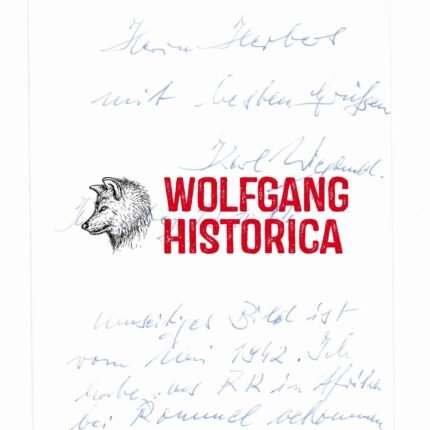 Herrn Herbst
mit besten Grüßen
Karl
WOLFGANG
HISTORICA
umseitiges Bild ist
vom Mai 1942. Ich
habe das RK in Afrika
bei Rommel bekommen